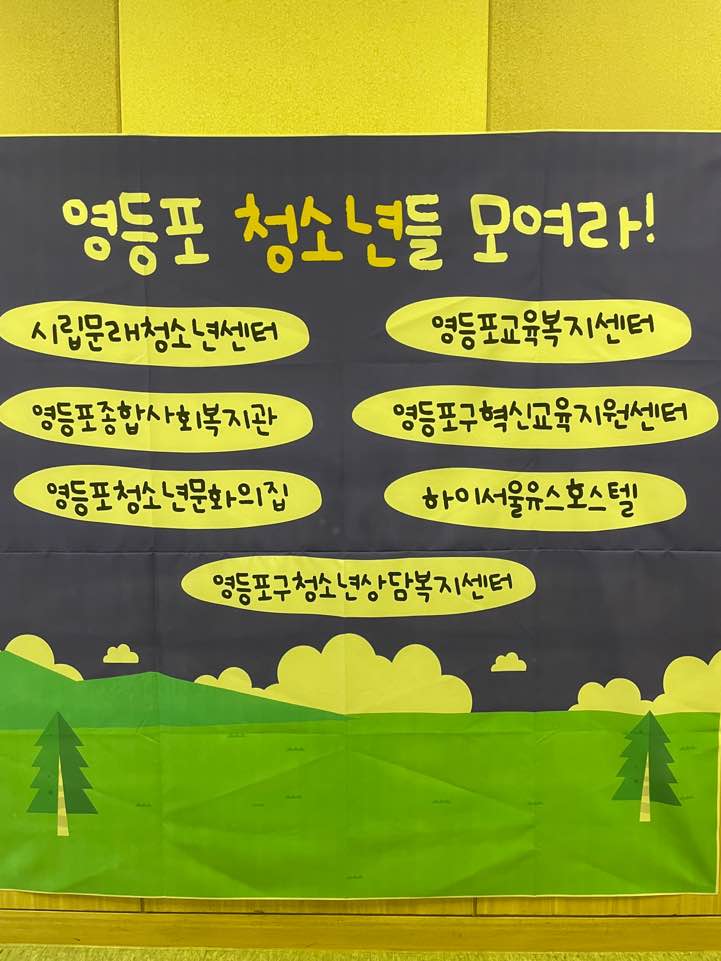 영등포 청소년들 모여라!
시립문래청소년센터
영등포교육복지센터
영등포종합사회복지관
영등포구혁신교육지원센터
영등포청소년문화의집
하이서울유스호스텔
영등포구청소년상담복지센터